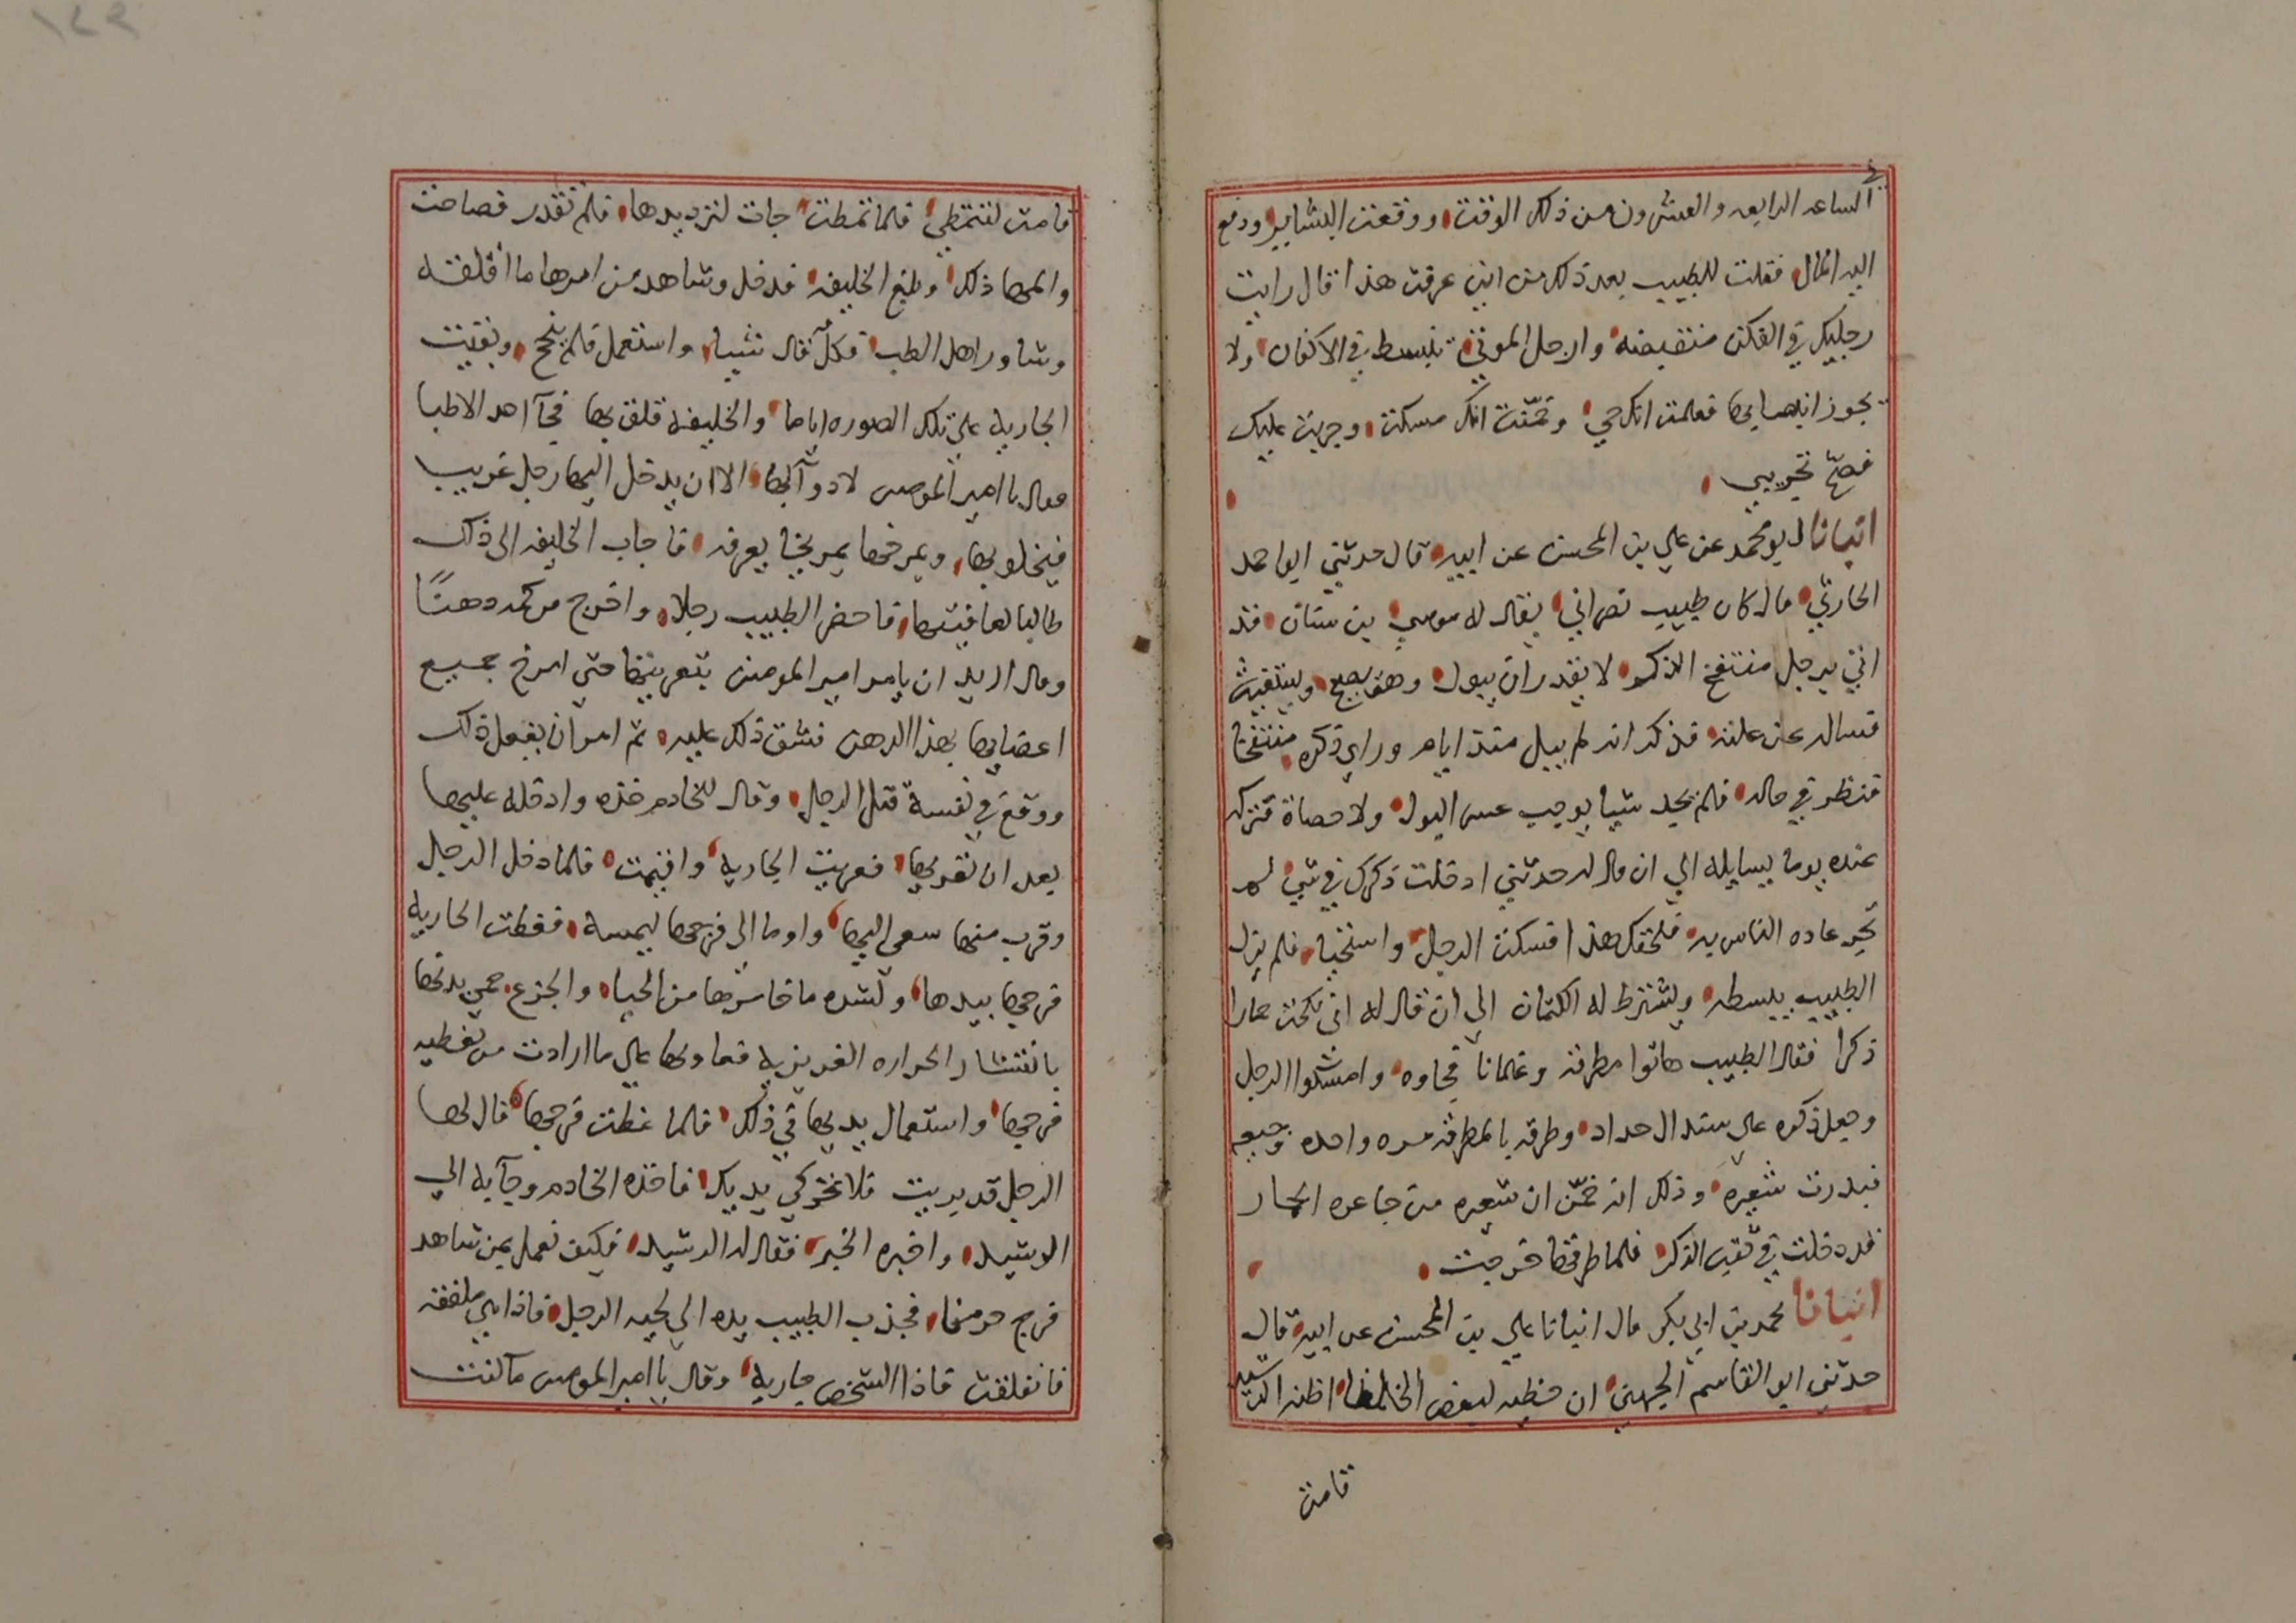 الساعه الرابعه والعشرون من ذلك الوقت ووقعت البشاير ودفع
اليه المال فقلت للطبيب بعد ذلك من اين عرفت هذا قال رايت
رجليك في الكفن منتقبضه وارجل الموتي تنبسط في الاكفان ولا
يجوز انقباضها فعلمت انك حي وخمّنت انك مسكت وجربت عليك
فصحّ تجريبي
انبانا ابو محمد عن علي بن المحسن عن ابيه قال حدثني ابو احمد
الحارثي قال كان طبيب نصراني يقال له موسي بن سنان قد
اتي برجل منتفخ الذكر لا يقدر ان يبول وهو يصيح ويستغيث
فساله عن علته فذكر انه لم يبل منذ ايام وراي ذكره منتفخا
فنظر في حاله فلم يجد شيا يوجب عسر البول ولا حصاة فتركه
عنده يوما يسايله الي ان قال له حدثني ادخلت ذكرك في شي لم
تجر عاده الناس به فلحقك هذا فسكت الرجل واستحيا فلم يزل
الطبيب يبسطه ويشترط له الكتمان الي ان قال له اني نكحت حمارا
ذكرا فقال الطبيب هاتوا مطرقه وغلمانا فجاوه وامسكوا الرجل
وجعل ذكره علي سندال حداد وطرقه بالمطرقه مره واحده وجيعه
فبدرت شعيره وذلك انه خمّن ان شعيره من جاعره الحمار
قد دخلت في ثقب الذكر فلما طرقها خرجت
انبانا محمد بن ابي بكر قال انبانا علي بن المحسن عن ابيه قال
حدثني ابو القاسم الجهني ان حظيه لبعض الخلفا اظنه الرشيد
قامت
قامت لتتمطي فلما تمطت جات لترد يدها فلم تقدر فصاحت
والمها ذلك وبلغ الخليفه فدخل وشاهد من امرها ما اقلقه
وشاور اهل الطب فكلّ قال شيا واستعمل فلم ينجح وبقيت
الجاريه علي تلك الصوره اياما والخليفه قلق بها فجآ احد الاطبا
فقال يا امير المومنين لا دوآ لها الا ان يدخل اليها رجل غريب
فيخلو بها ويمرخها بمروخا يعرفه فاجاب الخليفه الي ذلك
طالبا لعافيتها فاحضر الطبيب رجلا واخرج من كمه دهنًا
وقال اريد ان يامر امير المومنين بتعريتها حتي امرخ جميع
اعضايها بهذا الدهن فشق ذلك عليه ثم امر ان يفعل ذلك
ووقع في نفسه قتل الرجل وقال للخادم خذه وادخله عليها
بعد ان تعريها فعريت الجاريه واقيمت فلما دخل الرجل
وقرب منها سعي اليها واوما الي فرجها ليمسه فغطت الجاريه
فرجها بيدها ولشده ما خامرها من الحيا والجزع حمي بدنها
بانتشار الحراره الغريزيه فعاونها علي ما ارادت من تغطيه
فرجها واستعمال يديها في ذلك فلما غطت فرجها قال لها
الرجل قد بريت فلا تحركي يديك فاخذه الخادم وجآ به الي
الرشيد واخبره الخبر فقال له الرشيد فكيف نعمل بمن شاهد
فرج حرمنا فجذب الطبيب يده الي لحيه الرجل فاذا هي ملصقه
فانقلعت فاذا الشخص جاريه وقال يا امير المومنين ما كنت